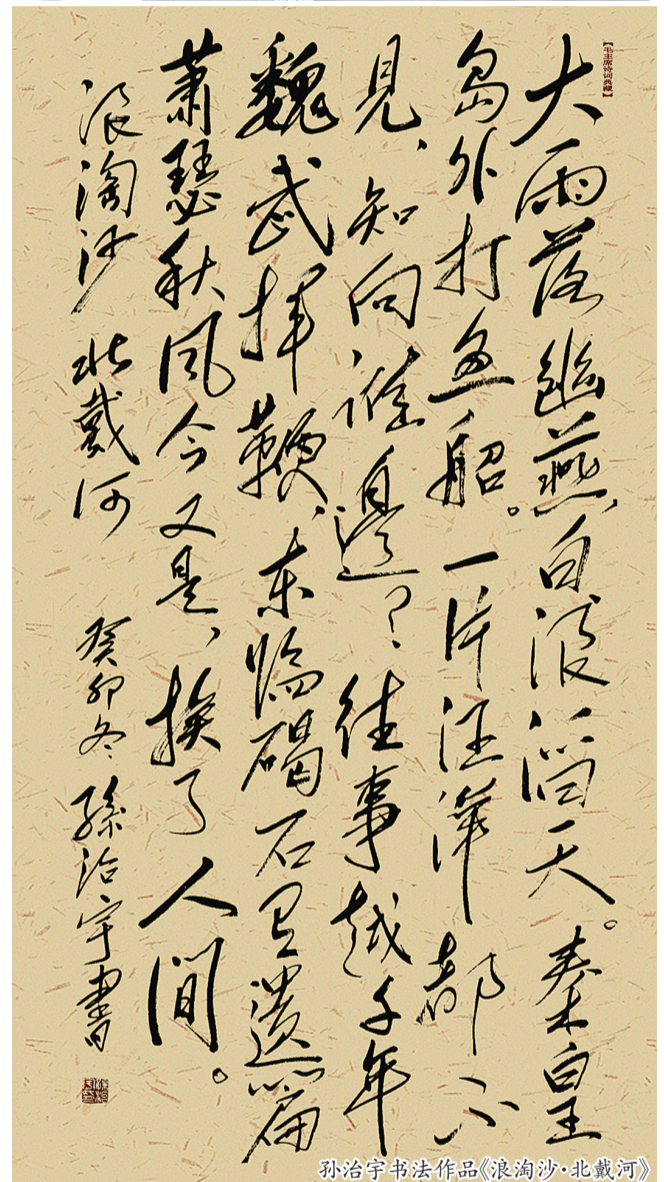 【毛主席诗词典藏】
大雨落幽燕、白浪滔天。秦皇
島外打魚船。一片汪洋都不
見、知向誰邊?往事越千年
魏武揮鞭、東臨碣石有遺篇
蕭瑟秋風今又是、換了人間。
浪淘沙 北戴河 癸卯冬 孫治宇書
孙治宇书法作品《浪淘沙·北戴河》